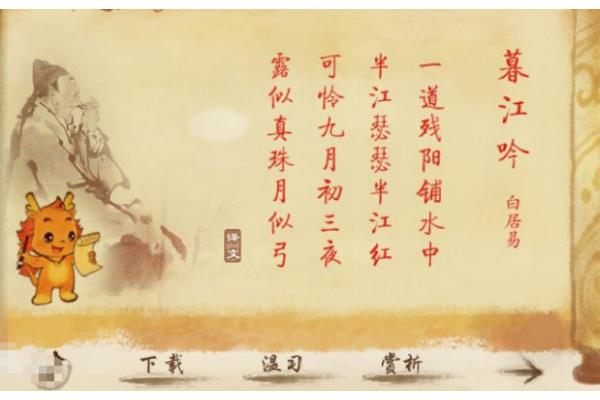 暮江吟
白居易
一道残阳铺水中
半江瑟瑟半江红
可怜九月初三夜
露似真珠月似弓
译文
下载
温习
赏析